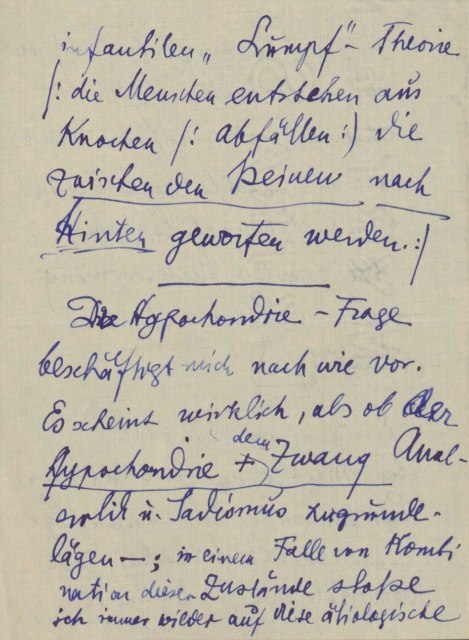 infantilen „Lumpf"- Theorie
/: die Menschen entstehen aus
Knochen /: abfällen :) die
zwischen den Beinen nach
Hinten geworfen werden. :/
Die Hypochondrie - Frage
beschäftigt mich nach wie vor.
Es scheint wirklich, als ob der
Hypochondrie + dem Zwang Anal-
erotik u. Sadismus zugrunde-
lägen —; in einem Falle von Kombi
nation dieser Zustände stoße
ich immer wieder auf diese ätiologische